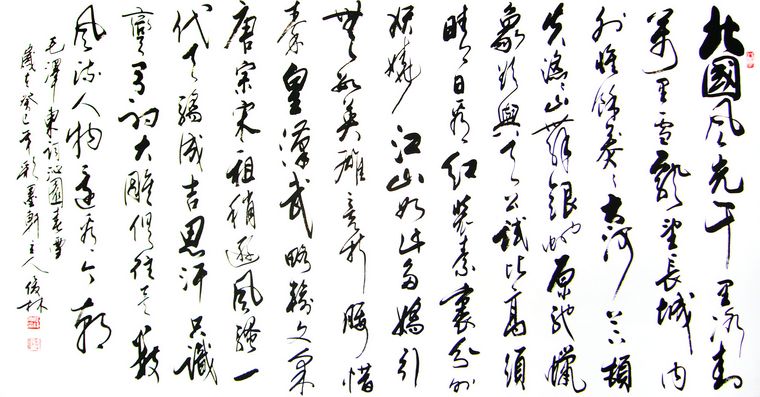 北國風光千里冰封
萬里雪飄望長城内
外惟餘莽々大河上下頓
失滔々山舞銀蛇原馳蠟
象欲與天公試比高須
晴日看紅裝素裹分外
妖嬈江山如此多嬌引
無數英雄競折腰惜
秦皇漢武略輸文采
唐宗宋祖稍遜風騷一
代天驕成吉思汗只識
彎弓射大雕俱往矣數
風流人物還看今朝
毛澤東詞沁園春雪
歲在癸巳年彩墨軒主人俊林